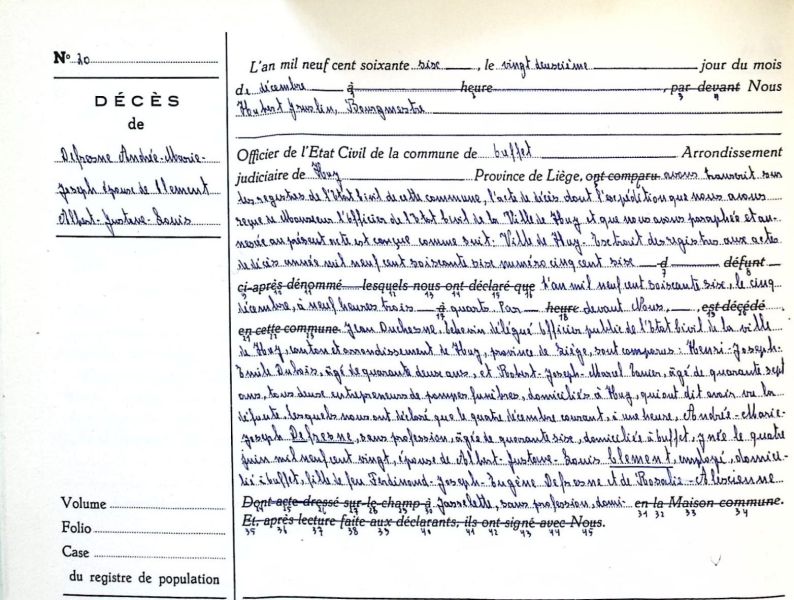 N° 20
DÉCÈS
de
Defresne Andrée-Marie-
Joseph épouse de Clement
Albert-Gustave-Louis
Volume
Folio
Case
du registre de population
L'an mil neuf cent soixante six, le vingt deuxième jour du mois
de décembre à heure, par devant Nous
Hubert, Bourgmestre
Officier de l'Etat Civil de la commune de Buffet Arrondissement
judiciaire de Huy Province de Liège, ont comparu avons transcrit sur
les registres de l'Etat Civil de cette commune, l'acte de décès dont l'expédition que nous avons
reçue de Monsieur l'Officier de l'Etat Civil de la Ville de Huy et que nous avons paraphée et an-
nexée au présent acte est conçue comme suit: Ville de Huy. Extrait des registres aux actes
de décès année mil neuf cent soixante six numéro cinq cent six d défunt
ci-après dénommé lesquels nous ont déclaré que l'an mil neuf cent soixante six, le cinq
décembre, à neuf heures trois à quarts Par heure devant Nous, est décédé
en cette commune Jean Duchesne, Echevin délégué Officier public de l'Etat Civil de la ville
de Huy, canton et arrondissement de Huy, province de Liège, sont comparus: Henri-Joseph-
Emile Dubois, âgé de quarante deux ans, et Robert-Joseph-Marcel, âgé de quarante sept
ans, tous deux entrepreneurs de pompes funèbres, domiciliés à Huy, qui ont dit avoir vu la
défunte, lesquels nous ont déclaré que le quatre décembre courant, à une heure, Andrée-Marie-
Joseph Defresne, sans profession, âgée de quarante six, domiciliée à Buffet, y née le quatre
juin mil neuf cent vingt, épouse de Albert-Gustave-Louis Clement, employé, domici-
lié à Buffet, fille de feu Ferdinand-Joseph-Eugène Defresne et de Rosalie-
Dont acte dressé sur le champ à sans profession, domi- en la Maison commune.
Et, après lecture faite aux déclarants, ils ont signé avec Nous.